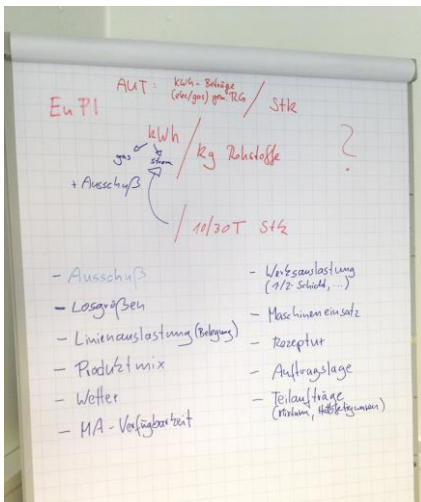 AUT: kWh-Beträge
(elec/gas) gem. RG / Stk
EnPI
kWh / kg Rohstoffe ?
gas strom
+ Ausschuß
/ 10/30T Stk
- Ausschuß
- Losgrößen
- Linienauslastung (Belegung)
- Produktmix
- Wetter
- MA-Verfügbarkeit
- Werksauslastung
(1/2-Schicht, ...)
- Maschineneinsatz
- Rezeptur
- Auftragslage
- Teilaufträge